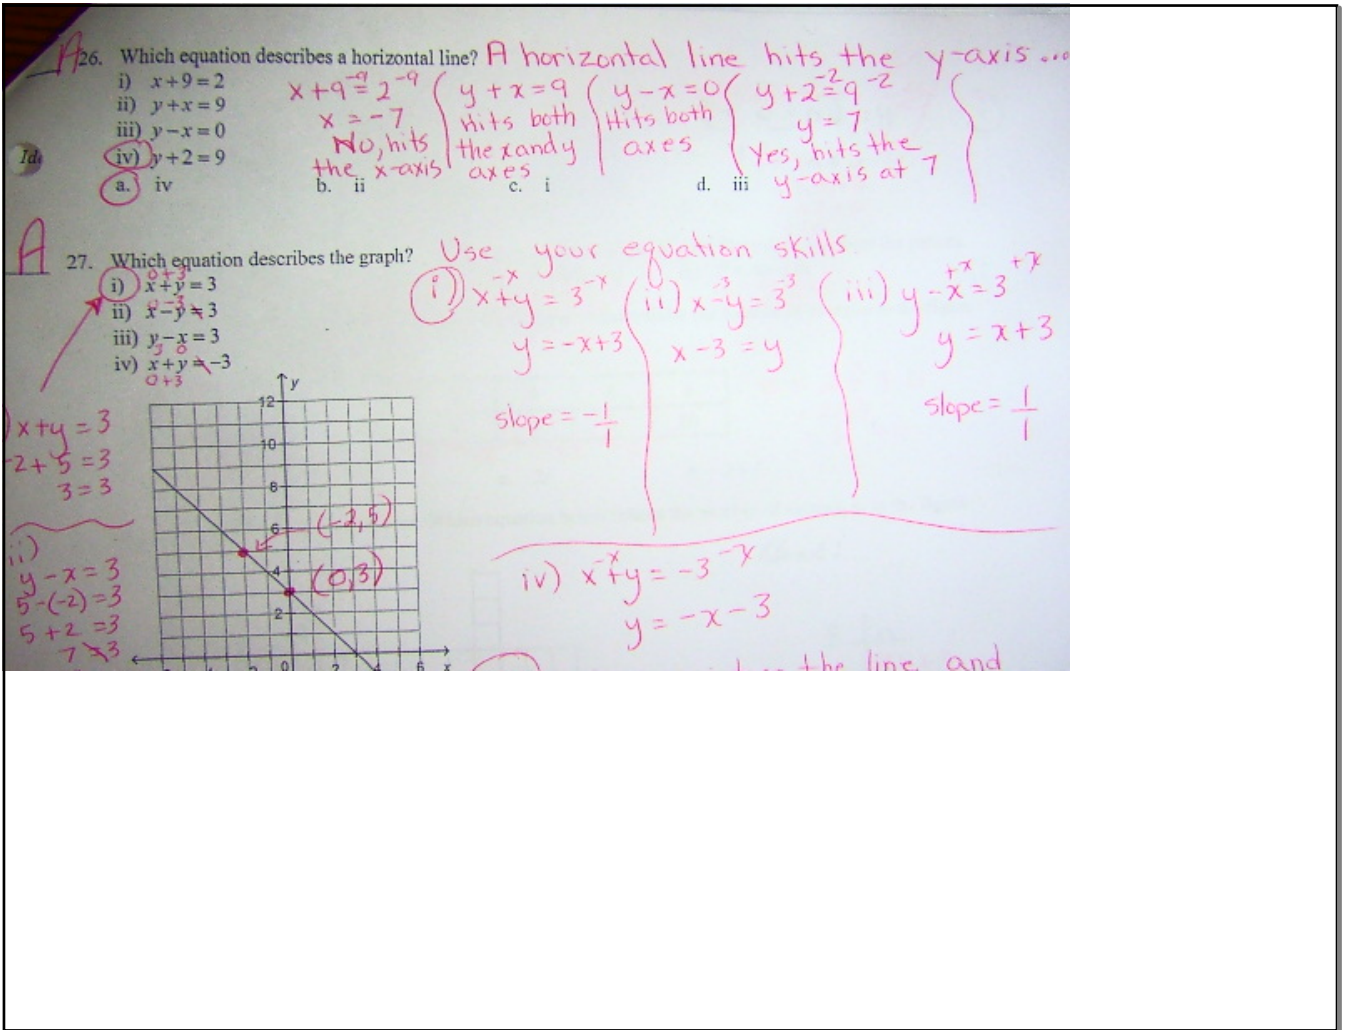 A 26. Which equation describes a horizontal line? A horizontal line hits the y-axis ...
i) x+9=2
ii) y+x=9
iii) y−x=0
iv) y+2=9
x+9⁻⁹=2⁻⁹
x = -7
No, hits
the x-axis
y+x=9
Hits both
the x and y
axes
y-x=0
Hits both
axes
y+2⁻²=9⁻²
y=7
Yes, hits the
y-axis at 7
Id
a. iv b. ii c. i d. iii
A 27. Which equation describes the graph? Use your equation skills
i) x+y=3
ii) x−y=3
iii) y−x=3
iv) x+y=−3
0+3
0-3
3 0
0+3
i) x+y=3
-x -x
y=-x+3
slope = -1/1
ii) x-y=3
-3 -3
x-3=y
iii) y-x=3
+x +x
y=x+3
slope = 1/1
iv) x+y=-3
-x -x
y=-x-3
) x+y=3
-2+5=3
3=3
ii)
y-x=3
5-(-2)=3
5+2=3
7≠3
y
12
10
8
6
4
2
(-2,5)
(0,3)
0 2 6 x
the line and